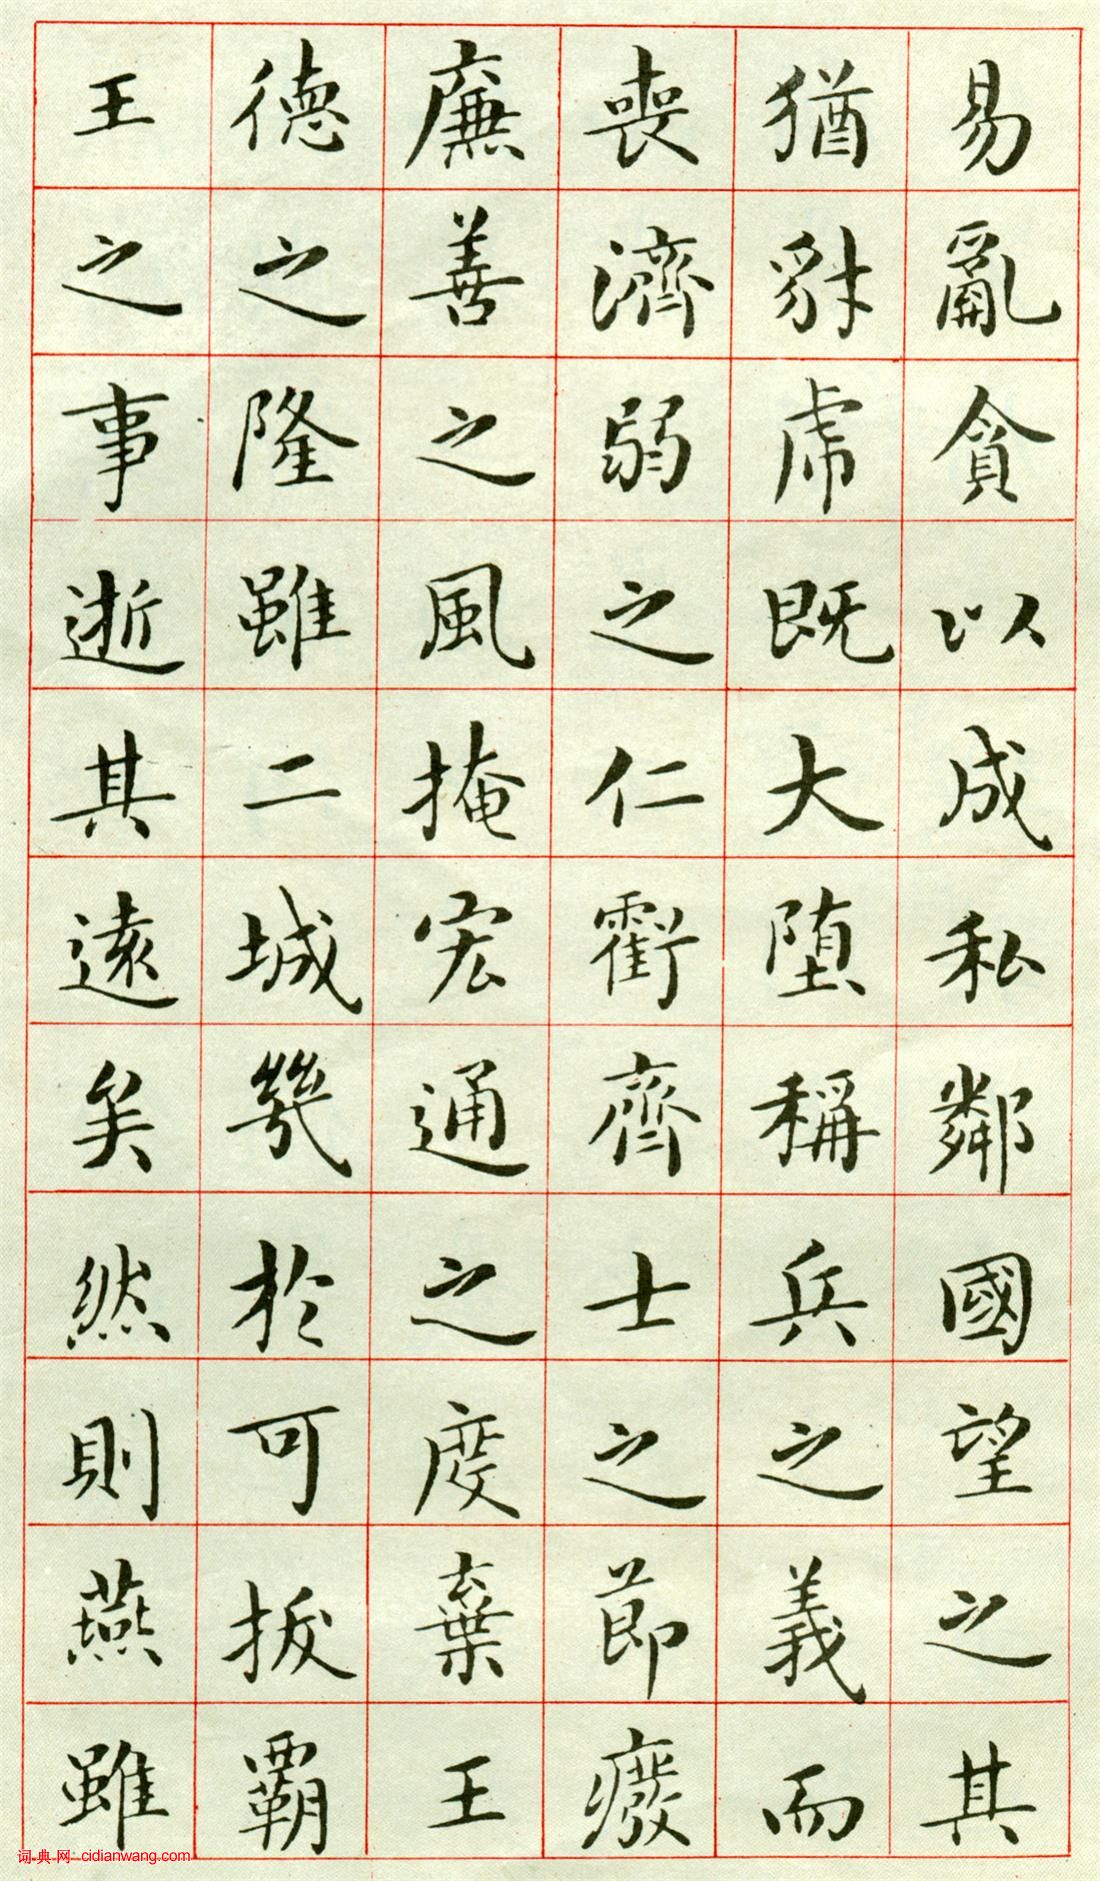 易亂貪以成私鄰國望之其
猶豺虎既大墮稱兵之義而
喪濟弱之仁虧齊士之節廢
廉善之風掩宏通之度棄王
德之隆雖二城幾於可拔霸
王之事逝其遠矣然則燕雖
词典网 cidianwang.com